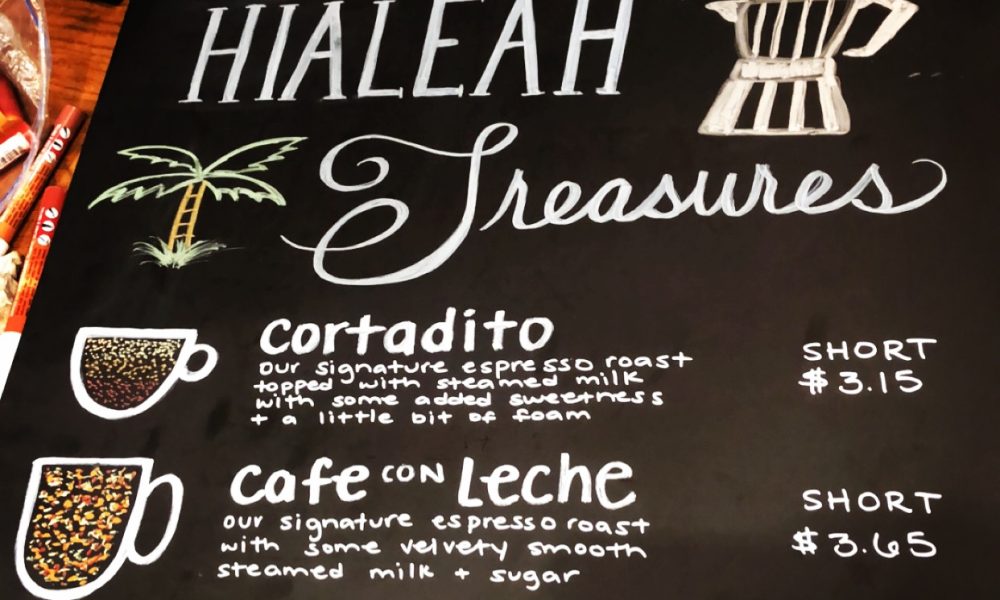 HIALEAH
Treasures
cortadito
our signature espresso roast
topped with steamed milk
with some added sweetness
+ a little bit of foam
SHORT
$3.15
cafe con Leche
our signature espresso roast
with some velvety smooth
steamed milk + sugar
SHORT
$3.65